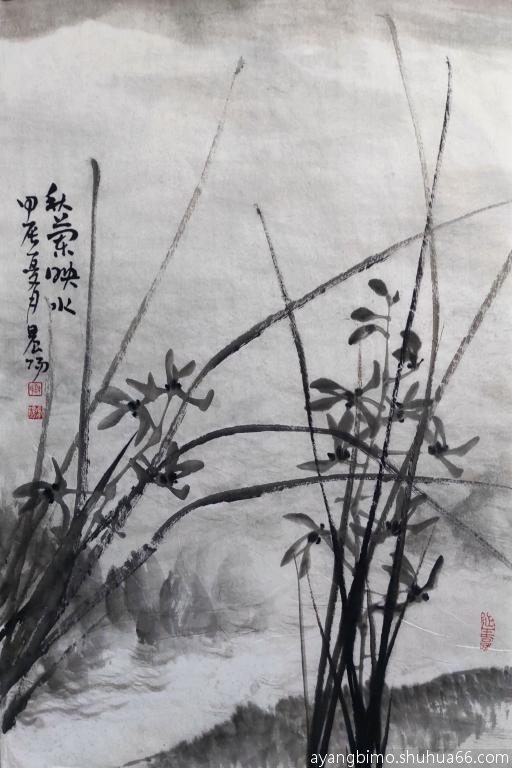 秋蘭映水
甲辰夏月晨阳
ayangbimo.shuhua66.com